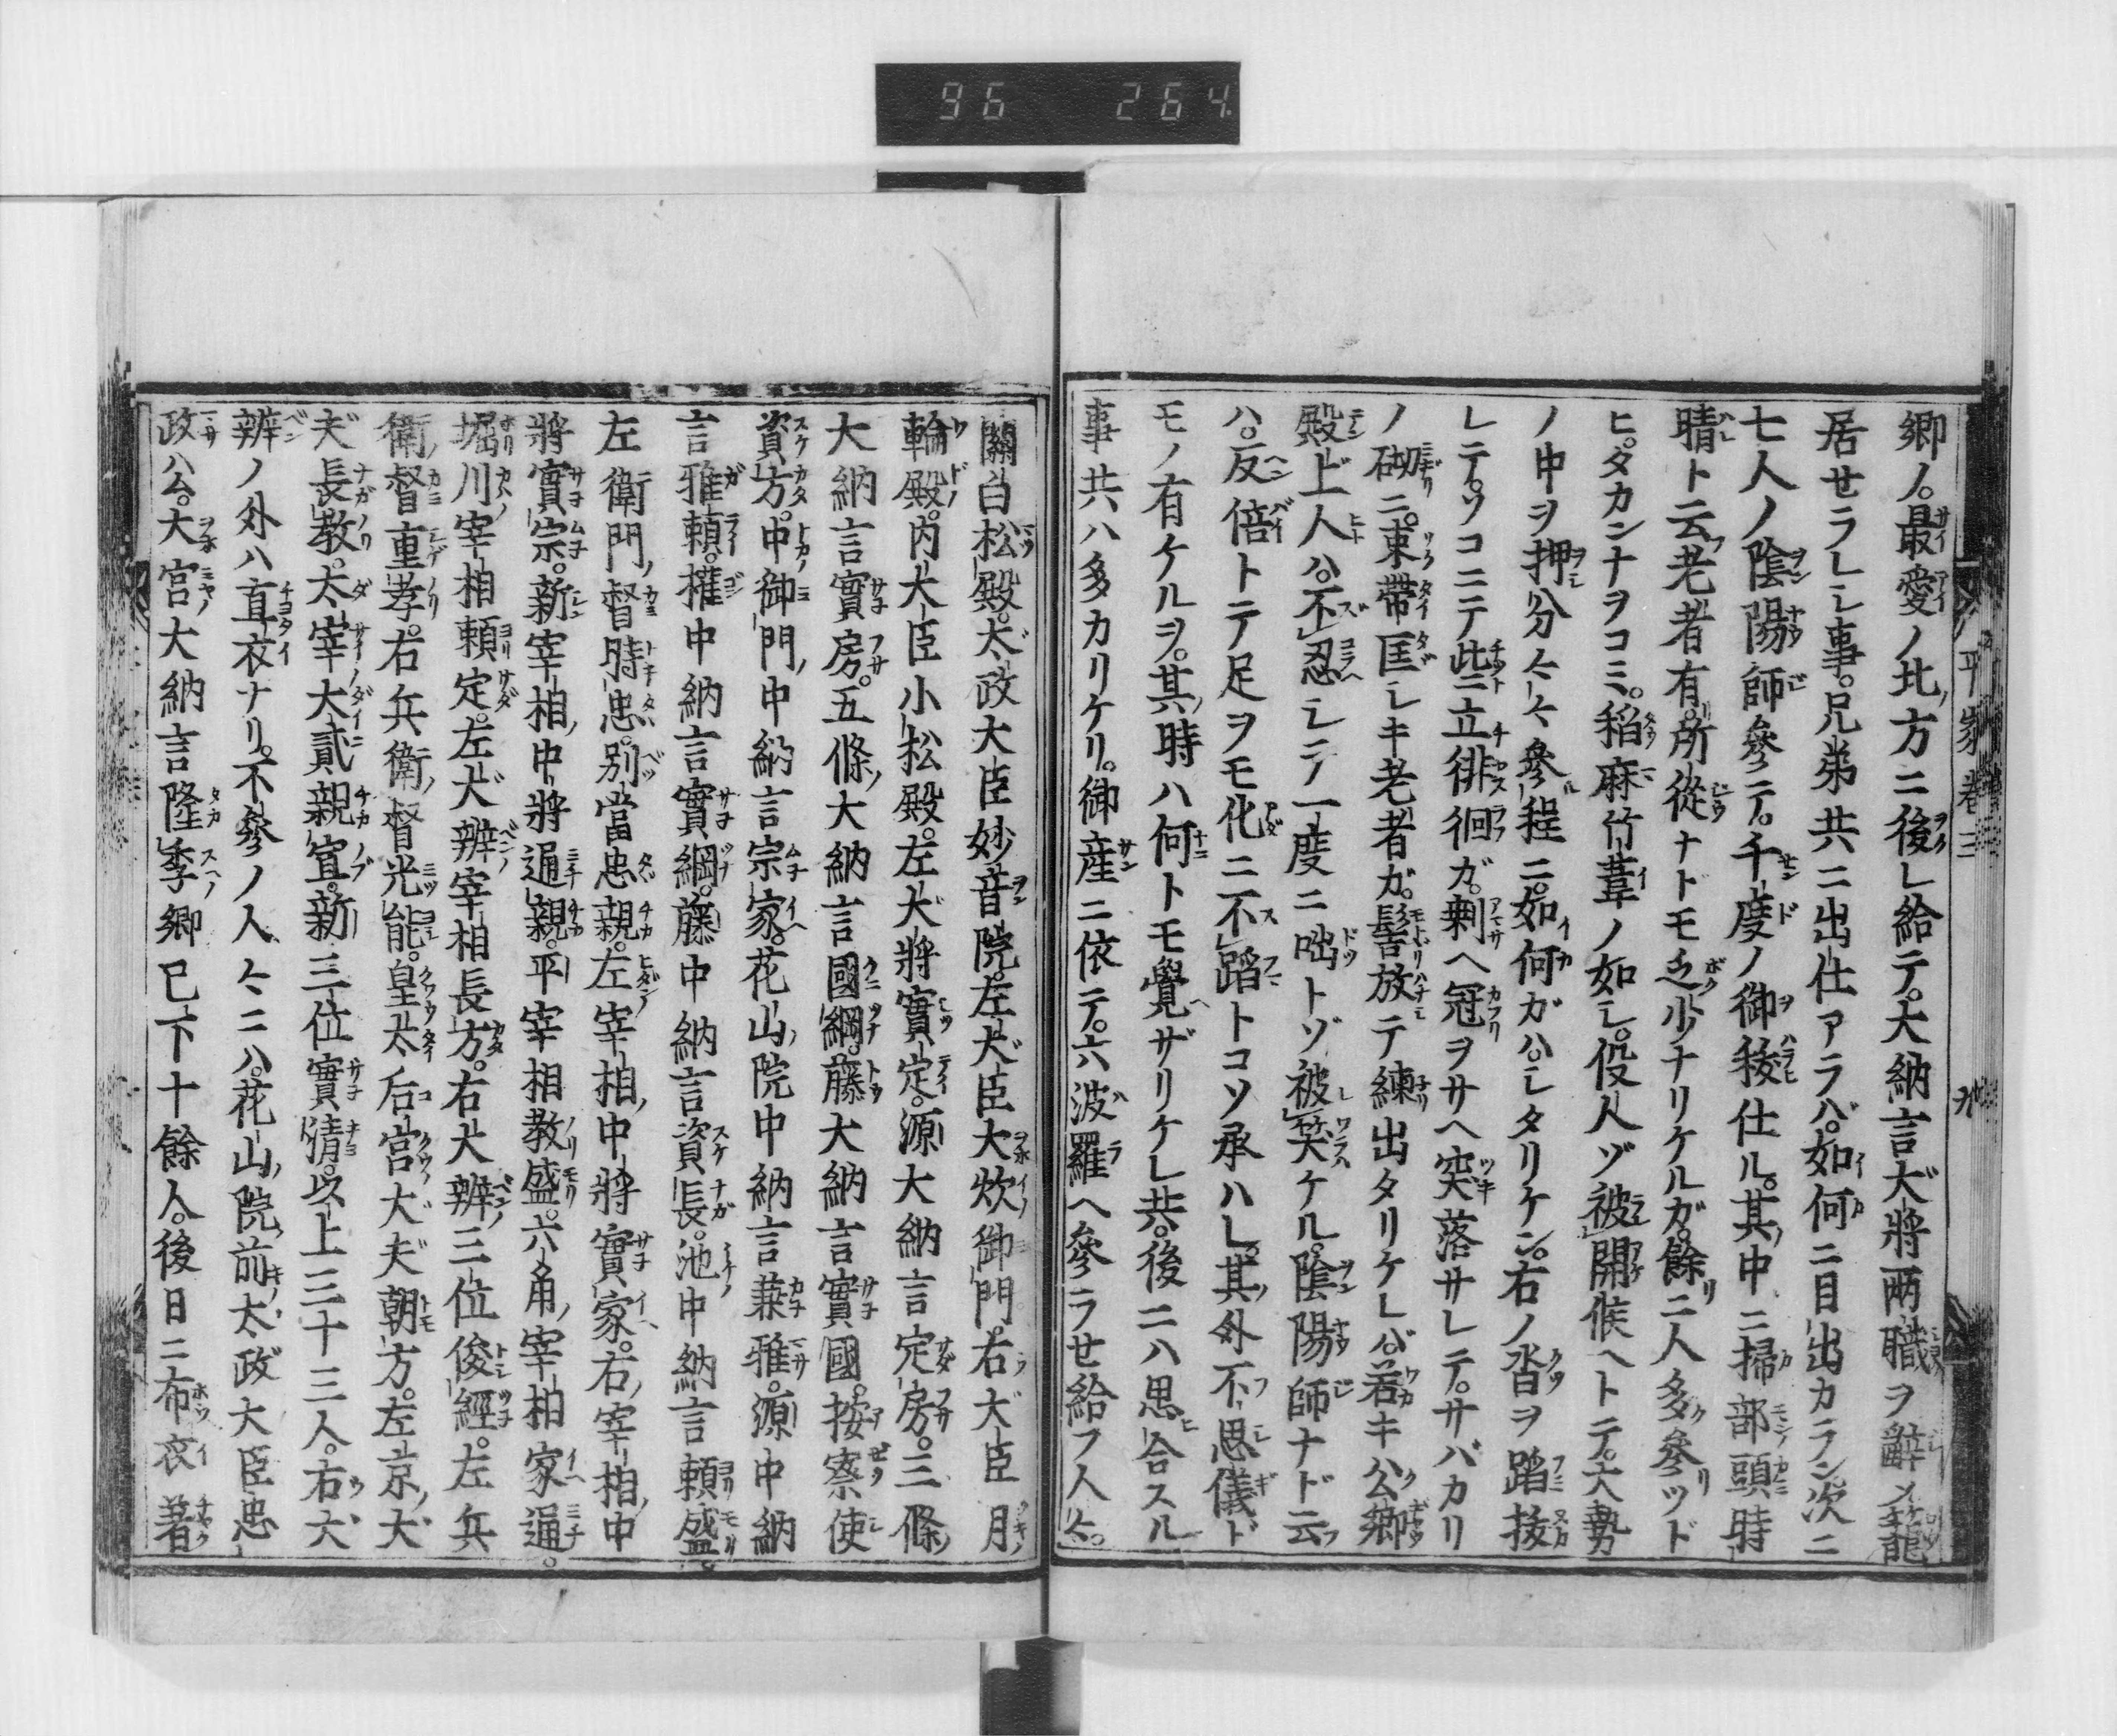 96 264
平家巻三 九
卿ノ。最愛ノ北ノ方ニ後レ給テ。大納言大將両職ヲ辭メ籠
居せラレシ事。兄弟共ニ出仕アラバ。如何ニ目出カラン。次ニ
七人ノ陰陽師參テ。千度ノ御秡仕ル。其ノ中ニ掃部頭時
晴ト云老者有。所從ナドモ乏少ナリケルガ。餘リニ人多ク參リツド
ヒ。タカンナヲコミ。稲麻竹葦ノ如シ。役人ゾ被開候ヘトテ。大勢
ノ中ヲ押分ケケ參ル程ニ。如何ガハシタリケン。右ノ沓ヲ蹈抜
レテ。ソコニテ些立徘徊ガ。剰ヘ冠ヲサヘ突落サレテ。サバカリ
ノ砌ニ。束帶匡シキ老者ガ。髻放テ練出タリケレバ。若キ公卿
殿上人ハ。不忍シテ一度ニ咄トゾ被笑ケル。陰陽師ナド云
ハ。反倍トテ足ヲモ化ニ不蹈トコソ承ハレ。其外不思儀ド
モノ有ケルヲ。其時ハ何トモ覺ザリケレ共。後ニハ思合スル
事共ハ多カリケリ。御産ニ依テ。六波羅ヘ參ラせ給フ人々。
關白松殿。太政大臣妙音院。左大臣大炊御門。右大臣月
輪殿。内大臣小松殿。左大將實定。源大納言定房。三條
大納言實房。五條大納言國綱。藤大納言實國。按察使
資方。中御門中納言宗家。花山院中納言兼雅。源中納
言雅頼。權中納言實綱。藤中納言資長。池中納言頼盛。
左衛門督時忠。別當忠親。左宰相中將實家。右宰相中
將實宗。新宰相中將通親。平宰相教盛。六角宰相家通。
堀川宰相頼定。左大辨宰相長方。右大辨三位俊經。左兵
衛督重孝。右兵衛督光能。皇太后宮大夫朝方。左京大
夫長教。太宰大貳親宣。新三位實清。以上三十三人。右大
辨ノ外ハ直衣ナリ。不參ノ人々ニハ。花山院前太政大臣忠
政公。大宮大納言隆季卿已下十餘人。後日ニ布衣著